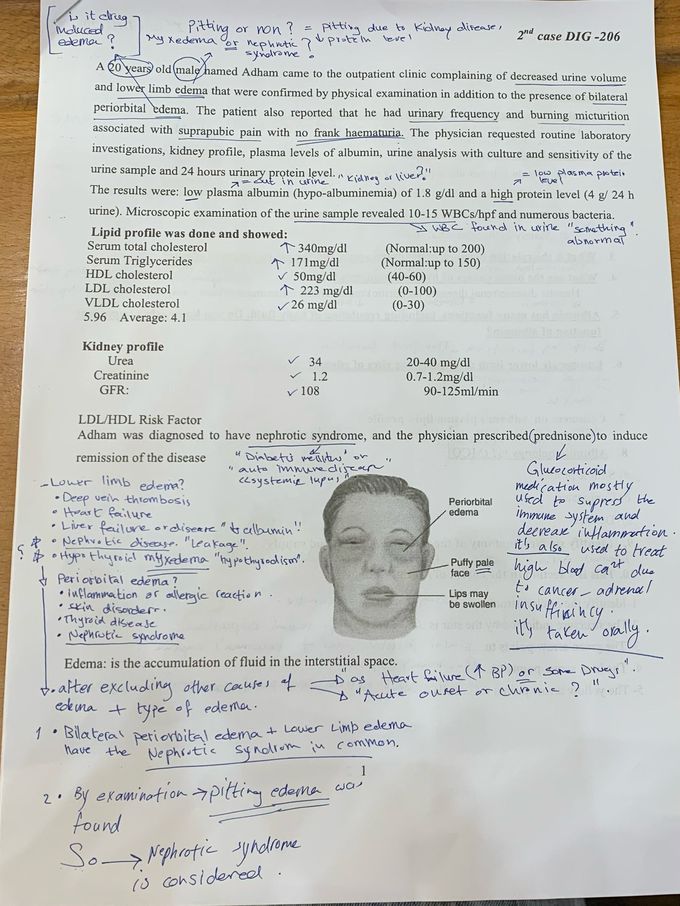 is it drug
induced
edema?
Pitting or non? = pitting due to Kidney disease,
Myxedema or nephrotic? ↓ protein level
syndrome.
2nd case DIG -206
A 20 years old male named Adham came to the outpatient clinic complaining of decreased urine volume
and lower limb edema that were confirmed by physical examination in addition to the presence of bilateral
periorbital edema. The patient also reported that he had urinary frequency and burning micturition
associated with suprapubic pain with no frank haematuria. The physician requested routine laboratory
investigations, kidney profile, plasma levels of albumin, urine analysis with culture and sensitivity of the
urine sample and 24 hours urinary protein level.
→ = out in urine "Kidney or liver?"
= low plasma protein
level
The results were: low plasma albumin (hypo-albuminemia) of 1.8 g/dl and a high protein level (4 g/ 24 h
urine). Microscopic examination of the urine sample revealed 10-15 WBCs/hpf and numerous bacteria.
→ WBC found in urine "something"
abnormal
Lipid profile was done and showed:
Serum total cholesterol ↑ 340mg/dl (Normal:up to 200)
Serum Triglycerides ↑ 171mg/dl (Normal:up to 150)
HDL cholesterol ✓ 50mg/dl (40-60)
LDL cholesterol ↑ 223 mg/dl (0-100)
VLDL cholesterol ✓ 26 mg/dl (0-30)
5.96 Average: 4.1
Kidney profile
Urea ✓ 34 20-40 mg/dl
Creatinine ✓ 1.2 0.7-1.2mg/dl
GFR: ✓ 108 90-125ml/min
LDL/HDL Risk Factor
Adham was diagnosed to have nephrotic syndrome, and the physician prescribed(prednisone)to induce
remission of the disease
"Diabetes mellitus" or
"auto immune disease
(systemic lupus)"
- Lower limb edema?
• Deep vein thrombosis
• Heart failure
• Liver failure or disease "↓ albumin"!
• Nephrotic disease. "Leakage".
• Hypothyroid myxedema "hypothyrodism".
Periorbital edema?
• inflammation or allergic reaction.
• skin disorder.
• Thyroid disease
• Nephrotic syndrome
Periorbital
edema
Puffy pale
face
Lips may
be swollen
Glucocorticoid
medication mostly
used to supress the
immune system and
decrease inflammation.
it's also used to treat
high blood Ca2+ due
to cancer - adrenal
insufficincy.
it's taken orally.
Edema: is the accumulation of fluid in the interstitial space.
• after excluding other causes of → "as Heart failure (↑ BP) or some Drugs".
edema + type of edema. → "Acute onset or chronic?".
1 • Bilateral periorbital edema + Lower Limb edema
have the Nephrotic Syndrom in common.
1
2 • By examination → pitting edema was
found
So → Nephrotic syndrome
is considered.